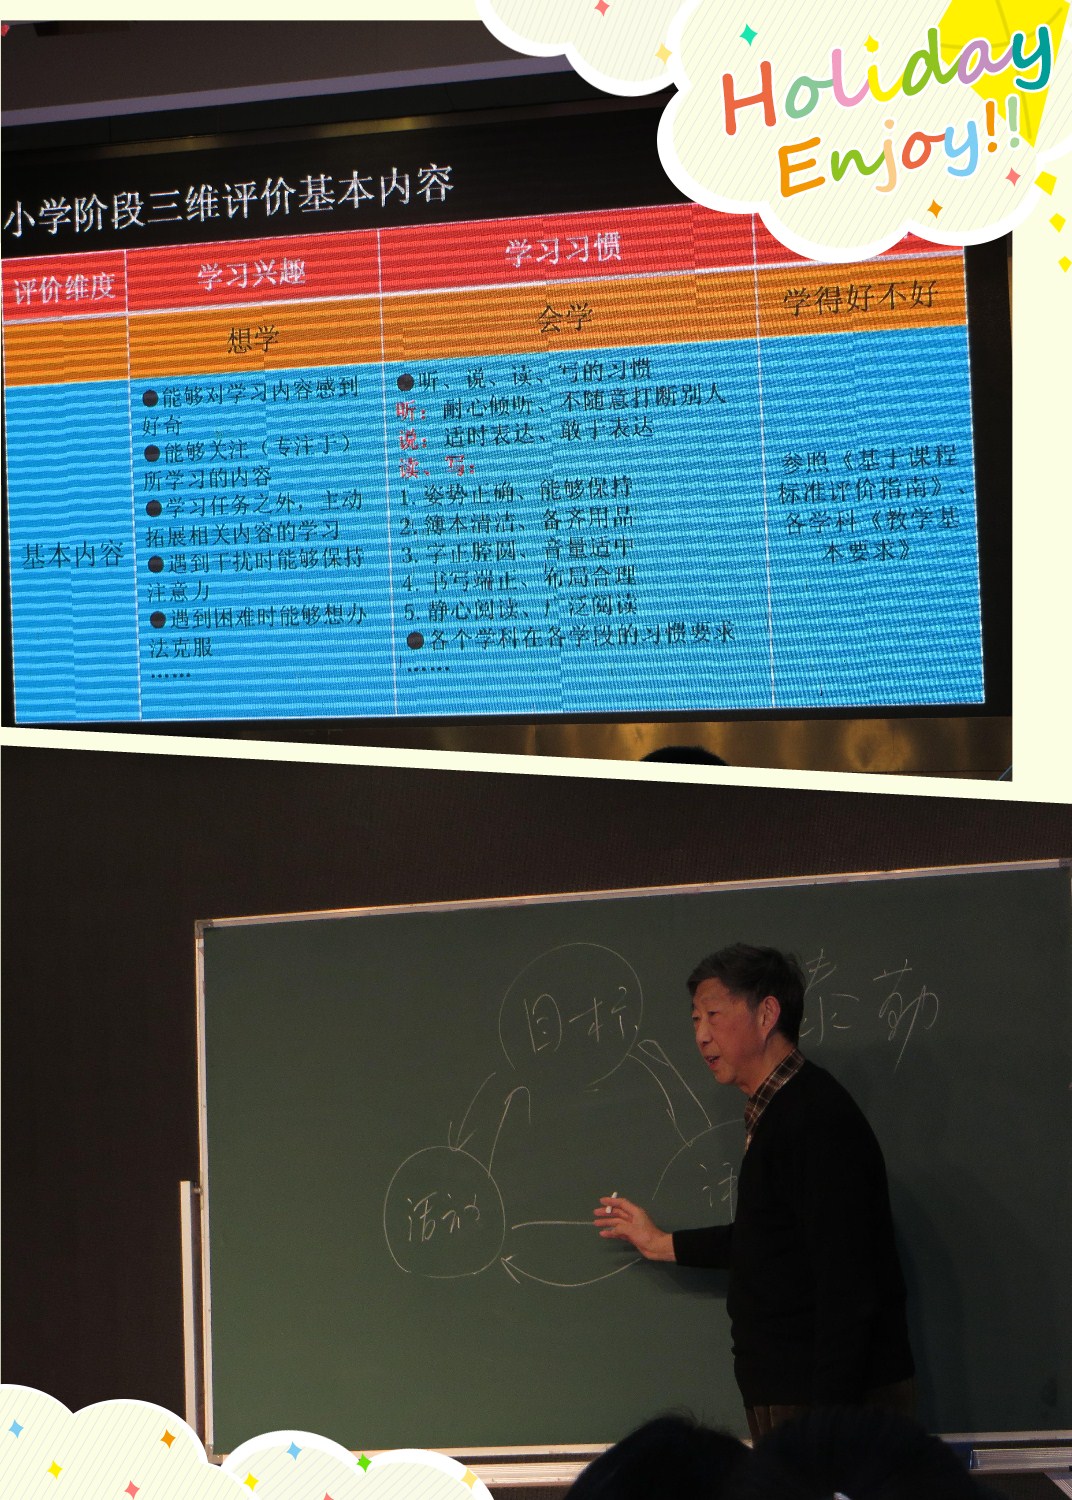 Holiday
Enjoy!!
小学阶段三维评价基本内容
评价维度
学习兴趣
学习习惯
想学
会学
学得好不好
基本内容
●能够对学习内容感到
好奇
●能够关注（专注于）
所学习的内容
●学习任务之外，主动
拓展相关内容的学习
●遇到干扰时能够保持
注意力
●遇到困难时能够想办
法克服
……
●听、说、读、写的习惯
听：耐心倾听、不随意打断别人
说：适时表达、敢于表达
读、写：
1. 姿势正确、能够保持
2. 簿本清洁、备齐用品
3. 字正腔圆、音量适中
4. 书写端正、布局合理
5. 静心阅读、广泛阅读
●各个学科在各学段的习惯要求
……
参照《基于课程
标准评价指南》、
各学科《教学基
本要求》
目标
活动
勤